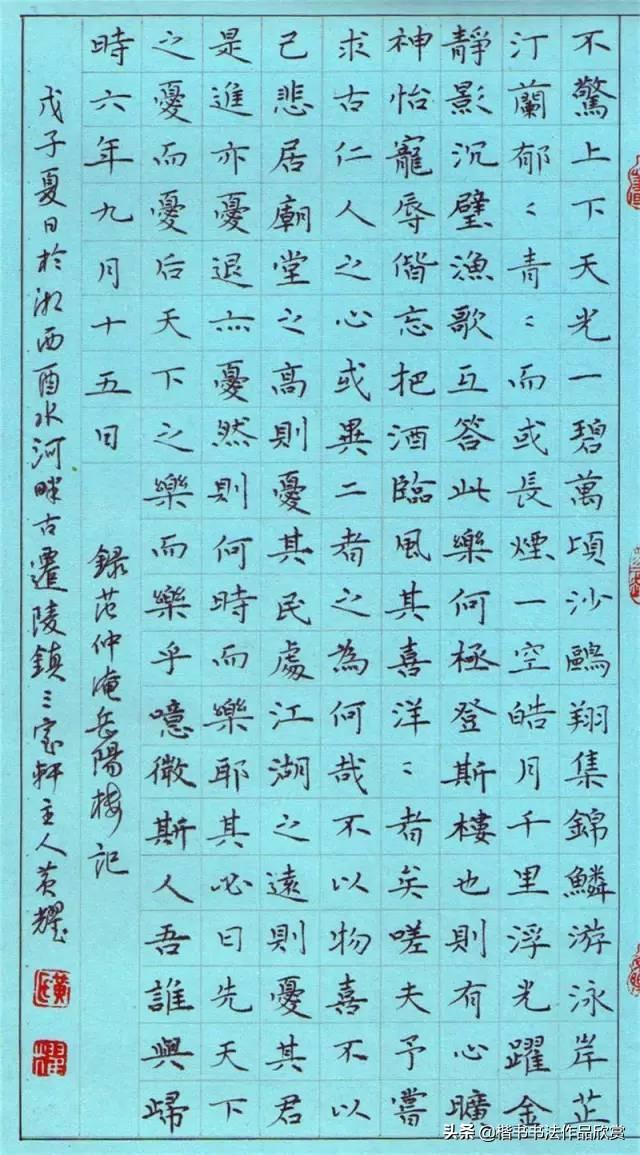 不驚上下天光一碧萬頃沙鷗翔集錦鱗游泳岸芷
汀蘭郁〻青〻而或長煙一空皓月千里浮光躍金
靜影沉璧漁歌互答此樂何極登斯樓也則有心曠
神怡寵辱偕忘把酒臨風其喜洋〻者矣嗟夫予嘗
求古仁人之心或異二者之為何哉不以物喜不以
己悲居廟堂之高則憂其民處江湖之遠則憂其君
是進亦憂退亦憂然則何時而樂耶其必曰先天下
之憂而憂后天下之樂而樂乎噫微斯人吾誰與歸
時六年九月十五日 錄范仲淹岳陽樓記
戊子夏日於湘西酉水河畔古遷陵鎮軒主人黃耀
头条 @楷书书法作品欣赏